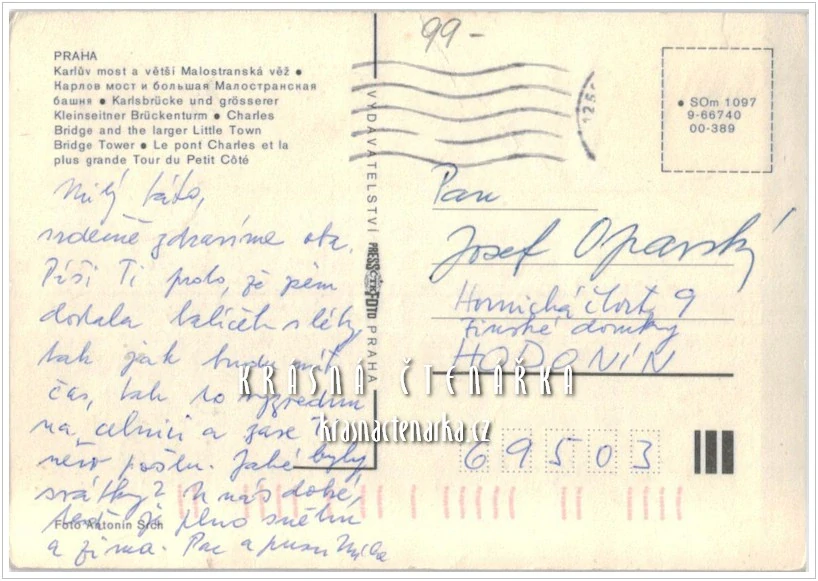 99-
PRAHA
Karlův most a větší Malostranská věž ●
Карлов мост и большая Малостранская
башня ● Karlsbrücke und grösserer
Kleinseitner Brückenturm ● Charles
Bridge and the larger Little Town
Bridge Tower ● Le pont Charles et la
plus grande Tour du Petit Côté
Milý táto,
srdečně zdravíme oba.
Píši Ti proto, že jsem
dostala balíček s léky,
tak jak budu mít
čas, tak to vyzvednu
na celnici a zase Ti
něco pošlu. Jaké byly
svátky? U nás dobré,
teď je plno sněhu
a zima. Pac a pusu Míla
Foto Antonín Srch
VYDAVATELSTVÍ PRESSFOTO PRAHA
ČTK
● SOm 1097
9-66740
00-389
Pan
Josef Opavský
Hornická čtvrť 9
Finské domky
HODONÍN
69503
KRÁSNÁ ČTENÁŘKA
krasnactenarka.cz